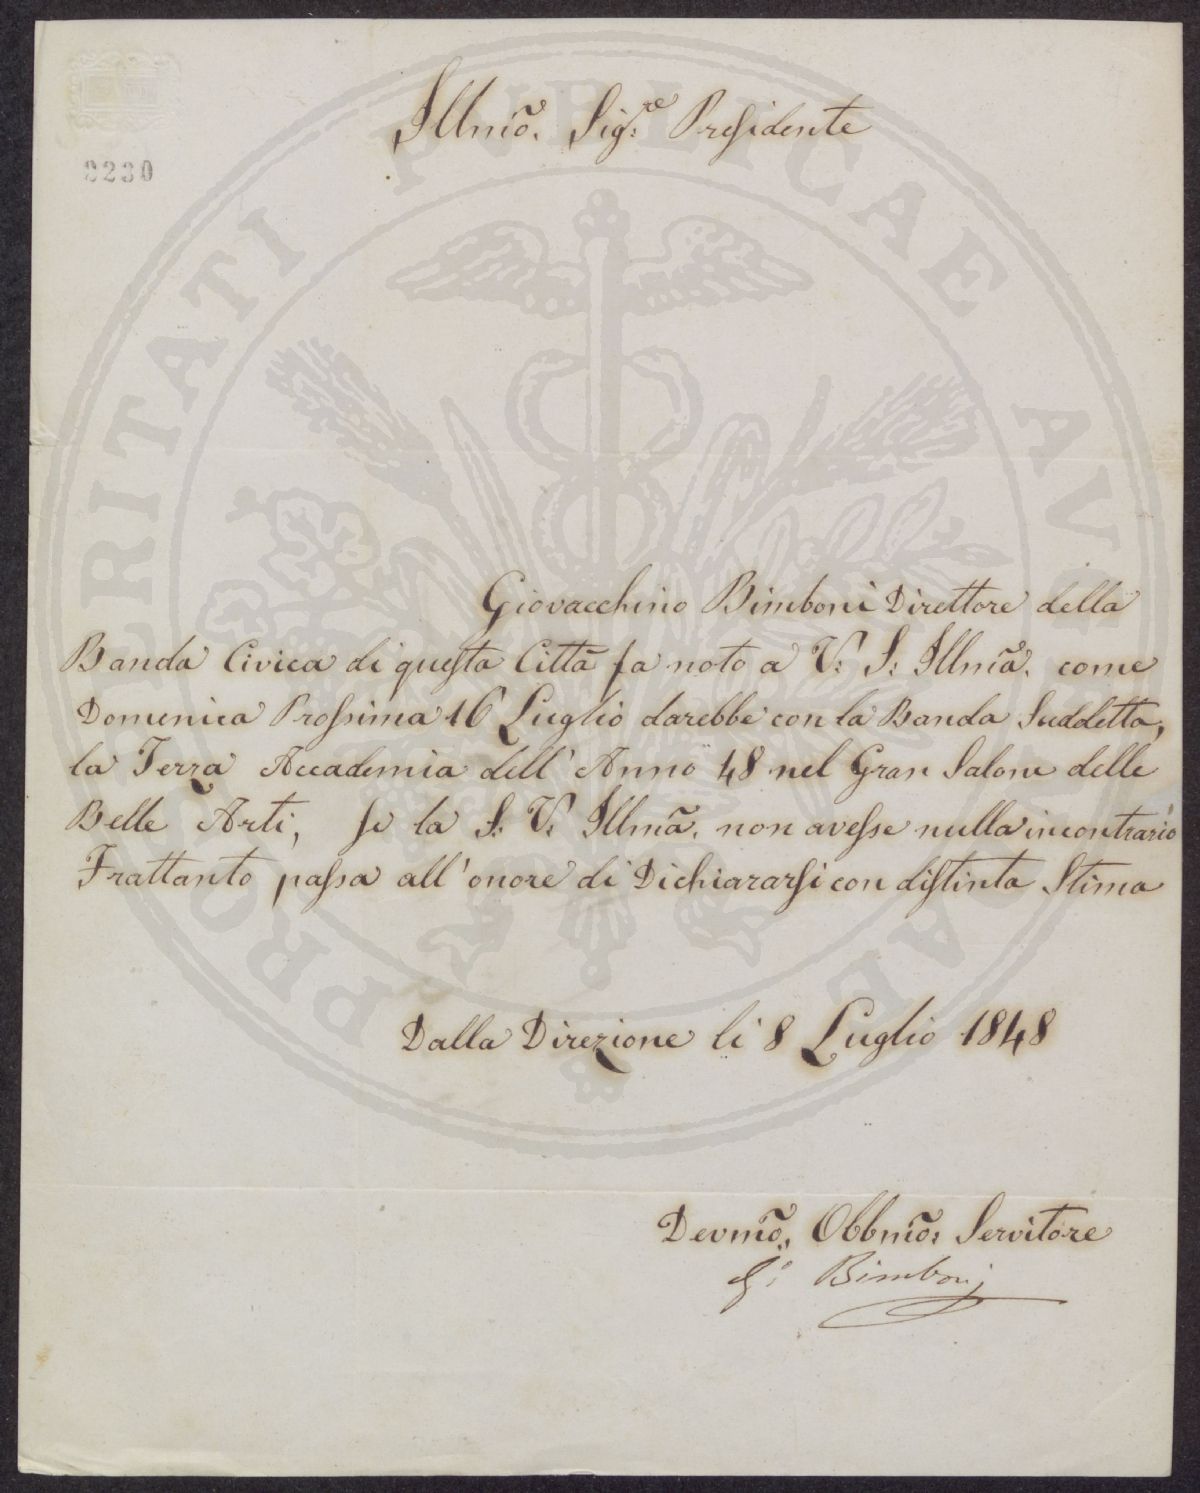 2230
Illmõ. Sig:re Presidente
Giovacchino Bimboni Direttore della
Banda Civica di questa Città fa noto a V: S: Illmã. come
Domenica Prossima 16 Luglio darebbe con la Banda Suddetta,
la Terza Accademia dell' Anno 48 nel Gran Salone delle
Belle Arti, se la S: V: Illmã. non avesse nulla incontrario
Frattanto passa all' onore di Dichiararsi con distinta Stima
Dalla Direzione li 8 Luglio 1848
Devmõ. Obbmõ: Servitore
G: Bimboni
PROSPERITATI PUBLICAE AUGENDAE